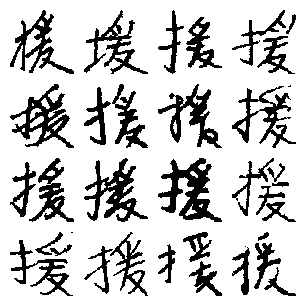 援援援援
援援援援
援援援援
援援援援